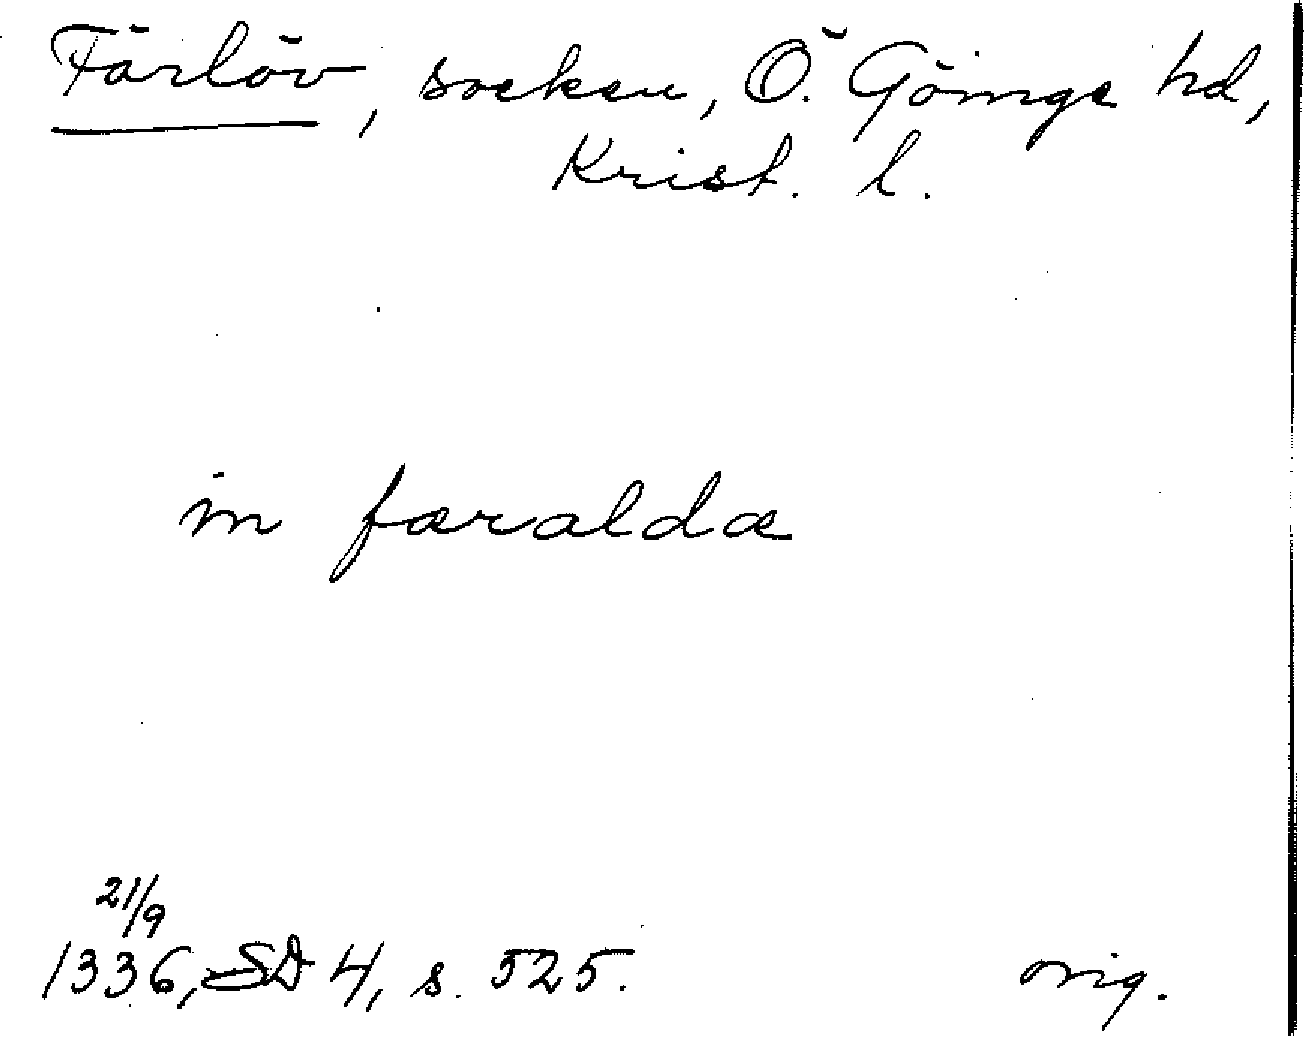 Färlöv, socken, Ö. Göinge hd,
Krist. l.
in færaldæ
21/9
1336, SD 4, s. 525. orig.